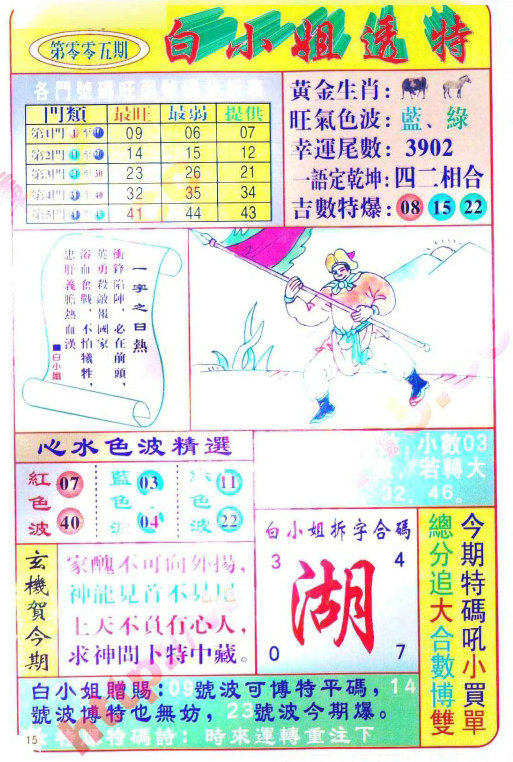 第零零五期
白小姐透特
各門號碼旺弱
門類 最旺 最弱 提供
第1門 至 09 06 07
第2門 至 14 15 12
第3門 至30 23 26 21
第4門 至40 32 35 34
第5門 至 41 44 43
黃金生肖：
旺氣色波：藍、綠
幸運尾數：3902
一語定乾坤：四二相合
吉數特爆：08 15 22
一字之曰熱
衝鋒陷陣，必在前頭，
英勇殺敵報國家
浴血奮戰，不怕犧牲，
忠肝義膽熱血漢
■白小姐
心水色波精選
紅色波 07 40
藍色 03 04
色波 11 22
：小數03
，若轉大
32．46。
玄機賀今期
家醜不可向外揚，
神龍見首不見尾
上天不負有心人，
求神問卜特中藏。
白小姐拆字合碼
3 4
湖
0 7
今期特碼吼小買單
總分追大合數博雙
白小姐贈賜：09號波可博特平碼，14
號波博特也無妨，23號波今期爆。
特碼詩：時來運轉重注下
15